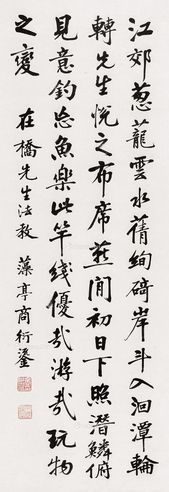 江郊葱蘢雲水蒨絢碕岸斗入洄潭輪
轉先生悅之布席燕閒初日下照潛鱗俯
見意釣忘魚樂此竿綫優哉游哉玩物
之變
在橋先生法教
藻亭商衍鎏